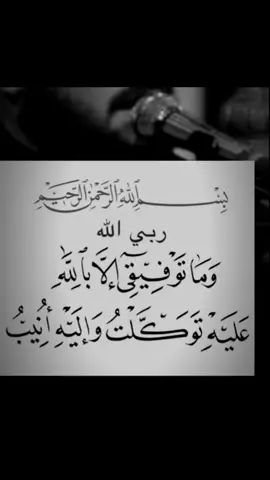 بِسْمِ اللهِ الرَّحْمٰنِ الرَّحِيْمِ
ربي الله
وَمَا تَوْفِيقِىٓ إِلَّا بِٱللَّهِ
عَلَيْهِ تَوَكَّلْتُ وَإِلَيْهِ أُنِيبُ